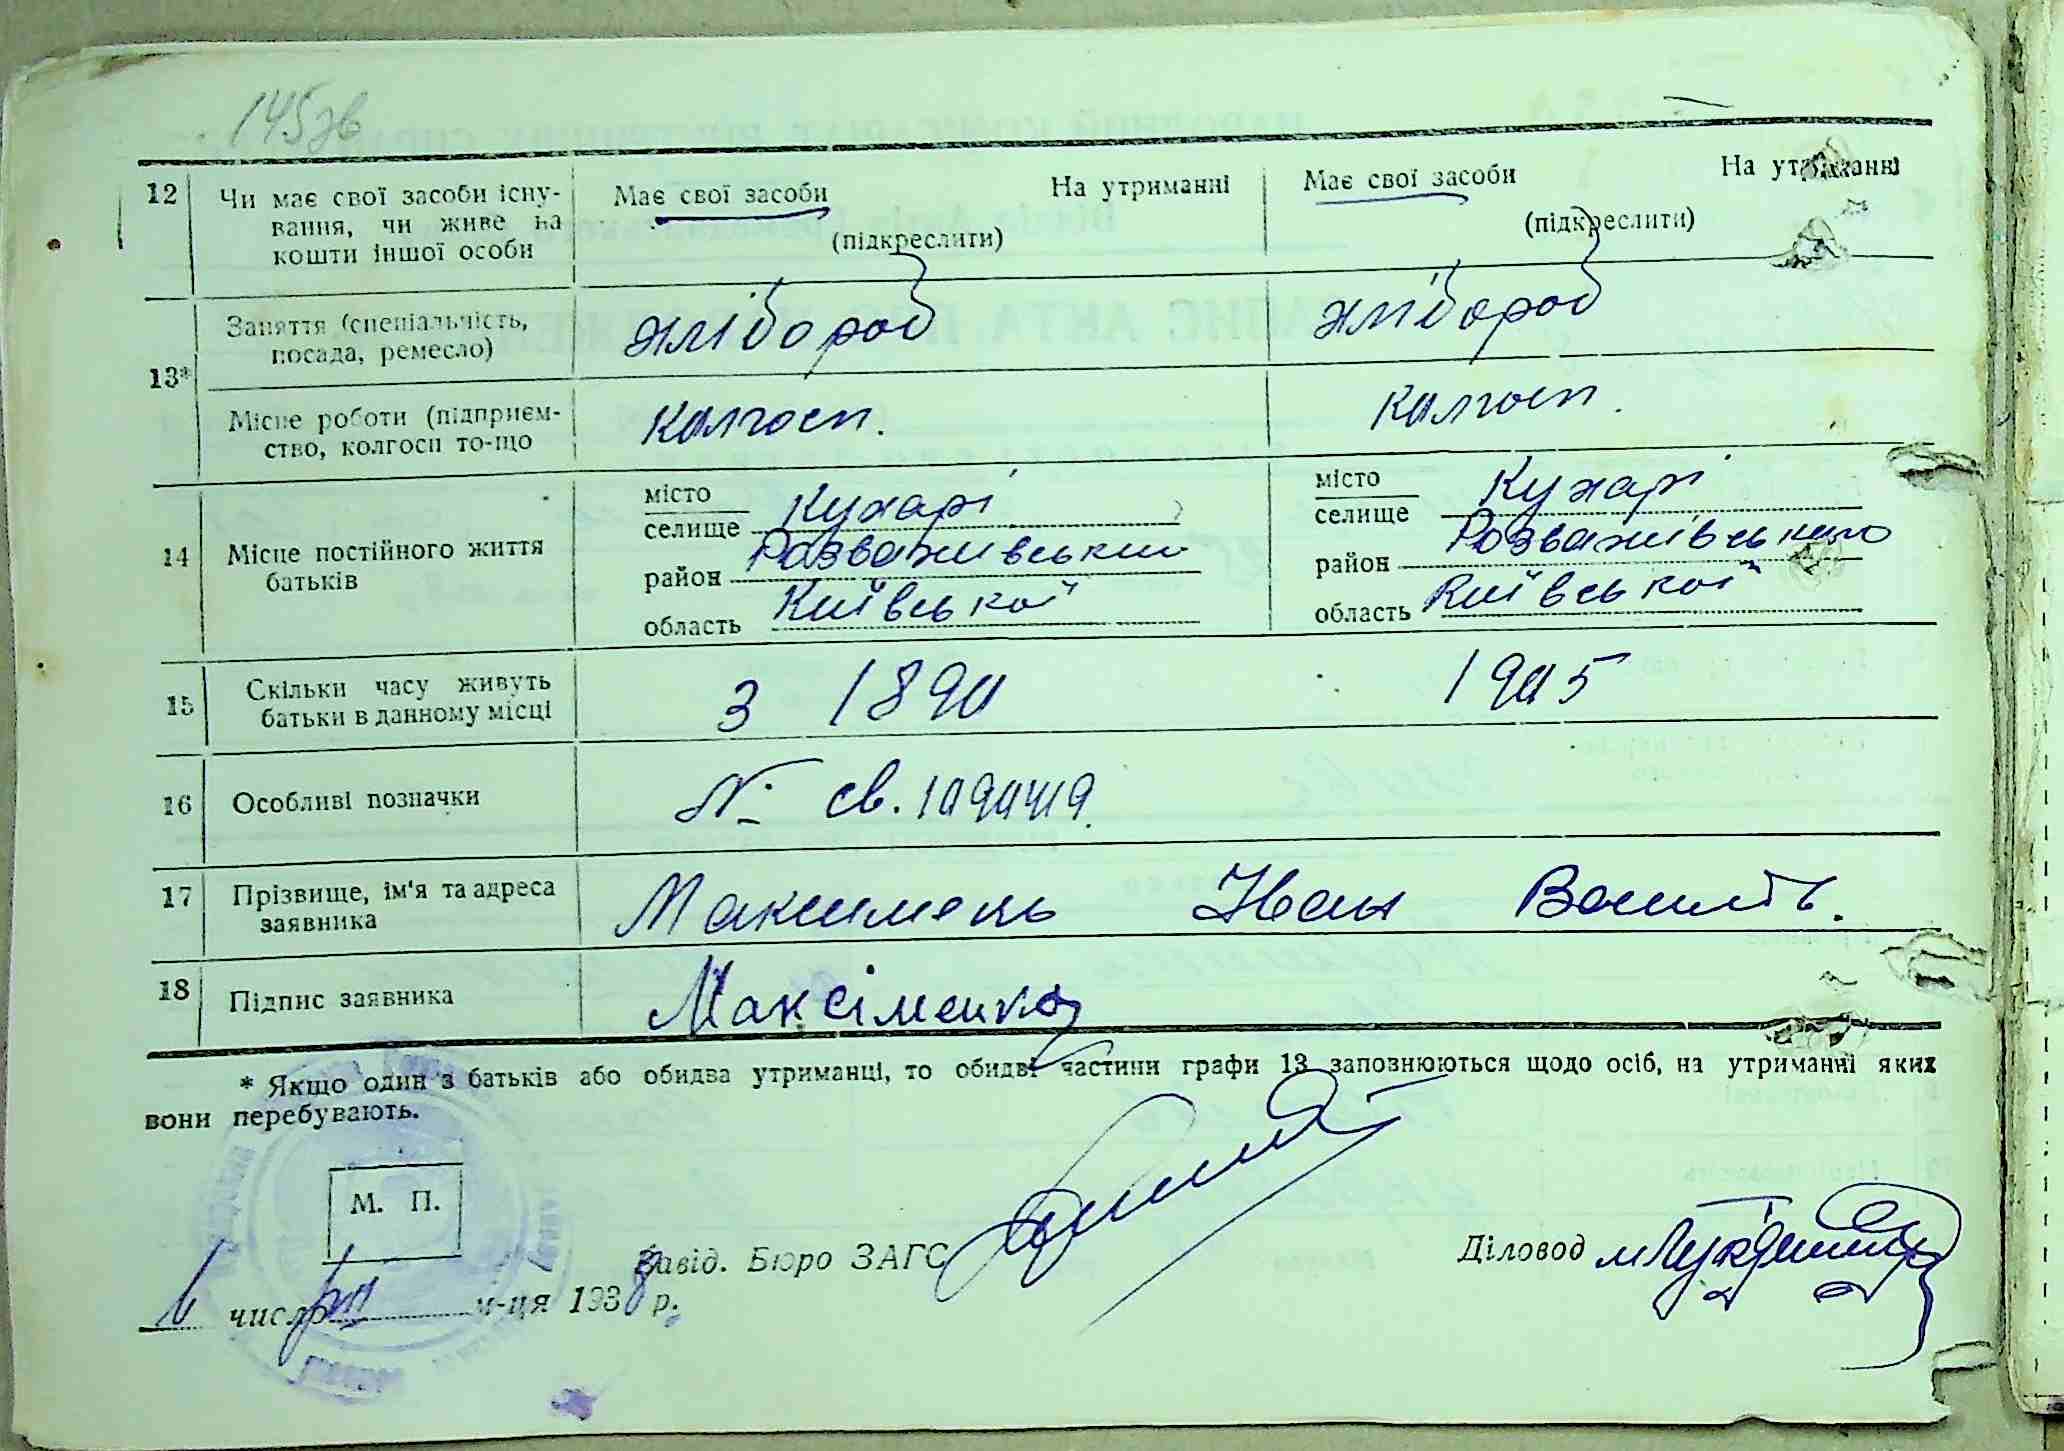 145зв
12 Чи має свої засоби існу- Має свої засоби На утриманні Має свої засоби На утриманні
вання, чи живе на (підкреслити) (підкреслити)
кошти іншої особи
13* Заняття (спеціальність, хлібороб хлібороб
посада, ремесло)
Місце роботи (підприєм- колгосп. колгосп.
ство, колгосп то-що
14 Місце постійного життя батьків
місто
селище Кухарі
район Розважівський
область Київської
місто
селище Кухарі
район Розважівського
область Київської
15 Скільки часу живуть з 1890 1905
батьки в данному місці
16 Особливі позначки № св.
17 Прізвище, ім'я та адреса Максимець Іван Василь.
заявника
18 Підпис заявника Максіменко
* Якщо один з батьків або обидва утриманці, то обидві частини графи 13 заповнюються щодо осіб, на утриманні яких
вони перебувають.
М. П.
Завід. Бюро ЗАГС Діловод
числа м-ця 1938 р.